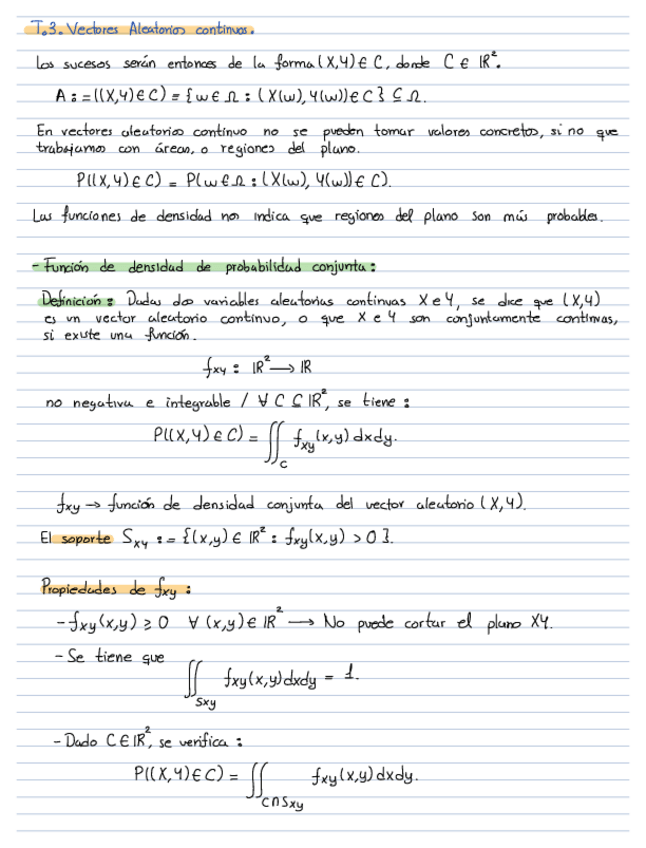 T.3. Vectores Aleatorios continuos.
Los sucesos serán entonces de la forma (X,Y) ∈ C, donde C ∈ ℝ².
A := ((X,Y) ∈ C) = {ω ∈ Ω : (X(ω), Y(ω)) ∈ C} ⊆ Ω.
En vectores aleatorios continuo no se pueden tomar valores concretos, si no que
trabajamos con áreas, o regiones del plano.
P((X,Y) ∈ C) = P(ω ∈ Ω : (X(ω), Y(ω)) ∈ C).
Las funciones de densidad nos indica que regiones del plano son más probables.
- Función de densidad de probabilidad conjunta:
Definición: Dadas dos variables aleatorias continuas X e Y, se dice que (X,Y)
es un vector aleatorio continuo, o que X e Y son conjuntamente continuas,
si existe una función.
fxy : ℝ² → ℝ
no negativa e integrable / ∀ C ⊆ ℝ², se tiene :
P((X,Y) ∈ C) = ∬_C fxy(x,y) dxdy.
fxy → función de densidad conjunta del vector aleatorio (X,Y).
El soporte Sxy := {(x,y) ∈ ℝ² : fxy(x,y) > 0}.
Propiedades de fxy :
- fxy(x,y) ≥ 0 ∀ (x,y) ∈ ℝ² → No puede cortar el plano XY.
- Se tiene que
∬_Sxy fxy(x,y) dxdy = 1.
- Dado C ∈ ℝ², se verifica :
P((X,Y) ∈ C) = ∬_C∩Sxy fxy(x,y) dxdy.